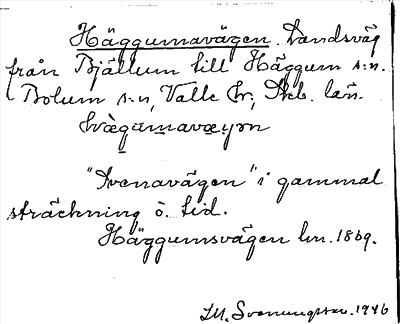 Häggumavägen. Landsväg
från Bjällum till Häggum s:n.
Bolum s:n, Valle hr; Skb. län.
"Svenavägen" i gammal
sträckning ö. tid.
Häggumsvägen lm. 1869.
I.M. Svenungsson. 1946